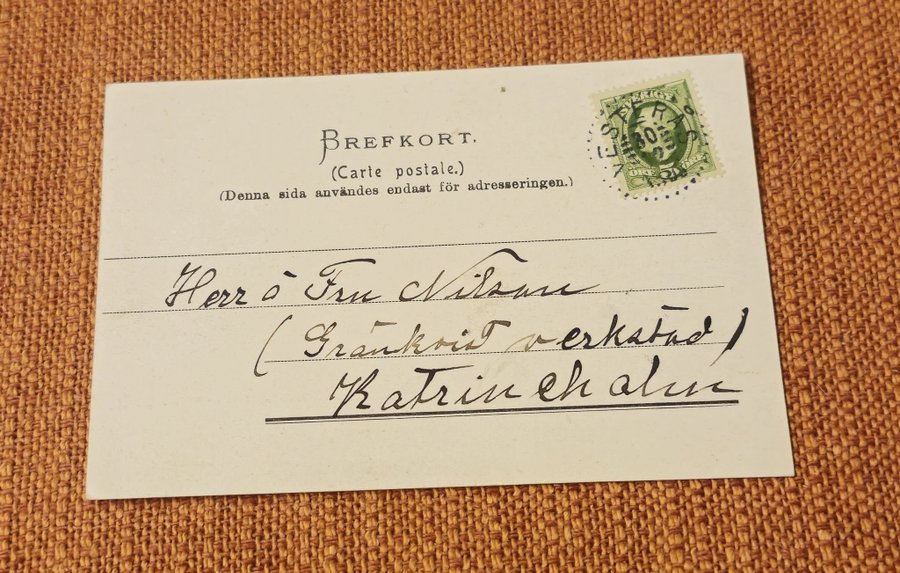 BREFKORT.
(Carte postale.)
(Denna sida användes endast för adresseringen.)
SVERIGE
VESTERÅS
30
Herr o Fru Nilson
(Gränkvist verkstad)
Katrineholm